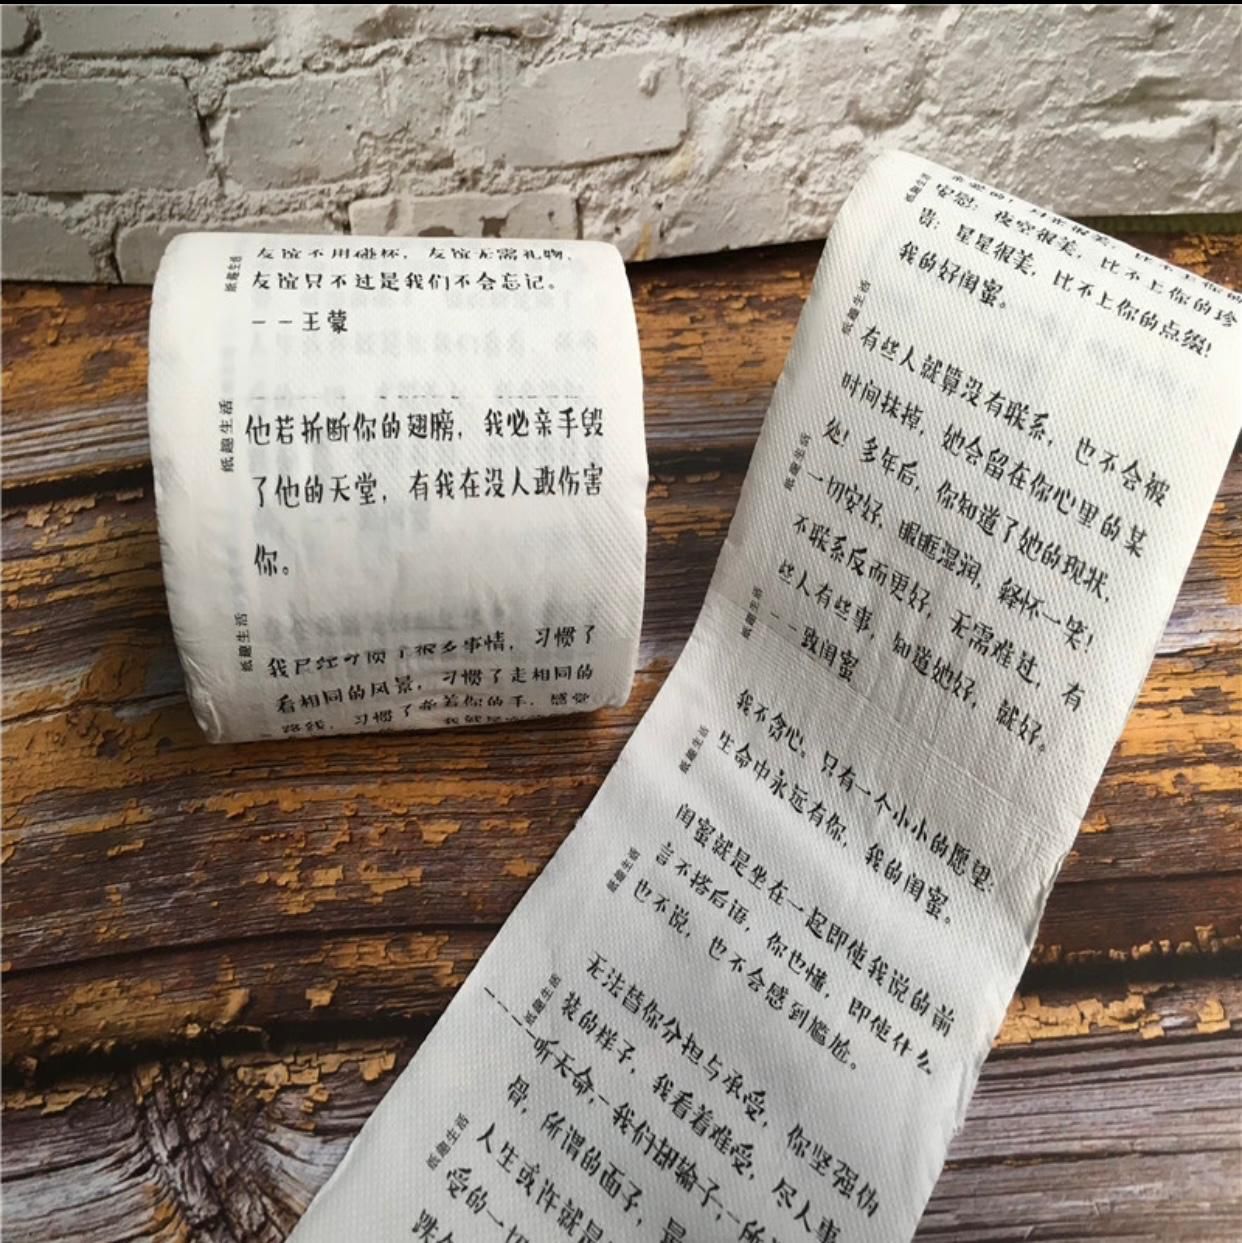 友谊不用碰杯，友谊无需礼物，
友谊只不过是我们不会忘记。
--王蒙
他若折断你的翅膀，我必亲手毁
了他的天堂，有我在没人敢伤害
你。
我已经习惯了很多事情，习惯了
看相同的风景，习惯了走相同的
路线，习惯了牵着你的手，感觉
纸趣生活
纸趣生活
纸趣生活
安慰：夜空很美，比不上你的珍
贵：星星很美，比不上你的点缀！
我的好闺蜜。
有些人就算没有联系，也不会被
时间抹掉，她会留在你心里的某
处！多年后，你知道了她的现状，
一切安好，眼眶湿润，释怀一笑！
不联系反而更好，无需难过，有
些人有些事，知道她好，就好。
--致闺蜜
我不贪心。只有一个小小的愿望：
生命中永远有你，我的闺蜜。
闺蜜就是坐在一起即使我说的前
言不搭后语，你也懂，即使什么
也不说，也不会感到尴尬。
无法替你分担与承受，你坚强伪
装的样子，我看着难受，尽人事
听天命，我们却输了，所
骨，所谓的面子，是
人生或许就是
受的一切
跌
纸趣生活
纸趣生活
纸趣生活
纸趣生活
纸趣生活
纸趣生活
纸趣生活
纸趣生活